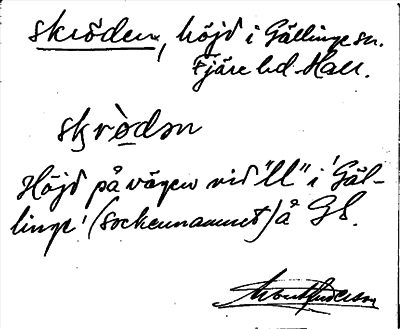 skröden, höjd i Gällinge sn.
Fjäre hd. Hall.
skrödən
Höjd på vägen vid "ll" i 'Gäl-
linge' (sockennamnet) å GS.